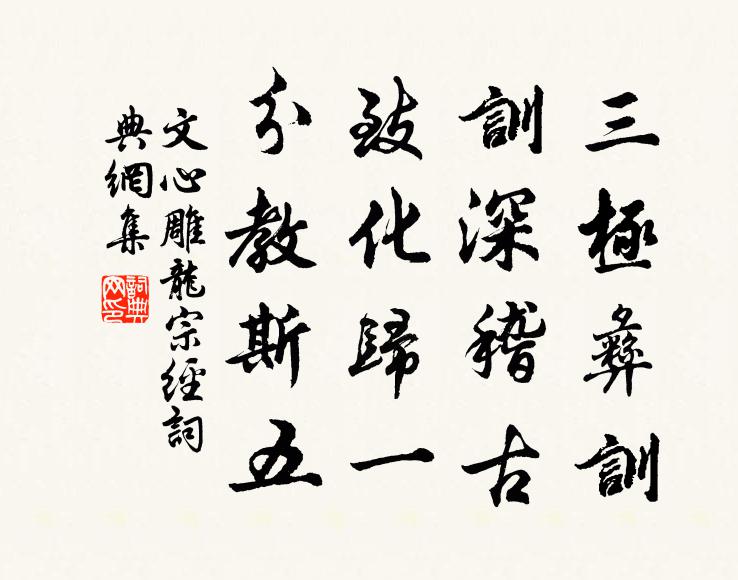 三極彝訓
訓深稽古
致化歸一
分教斯五
文心雕龍宗經詞
典網集
詞典
网印